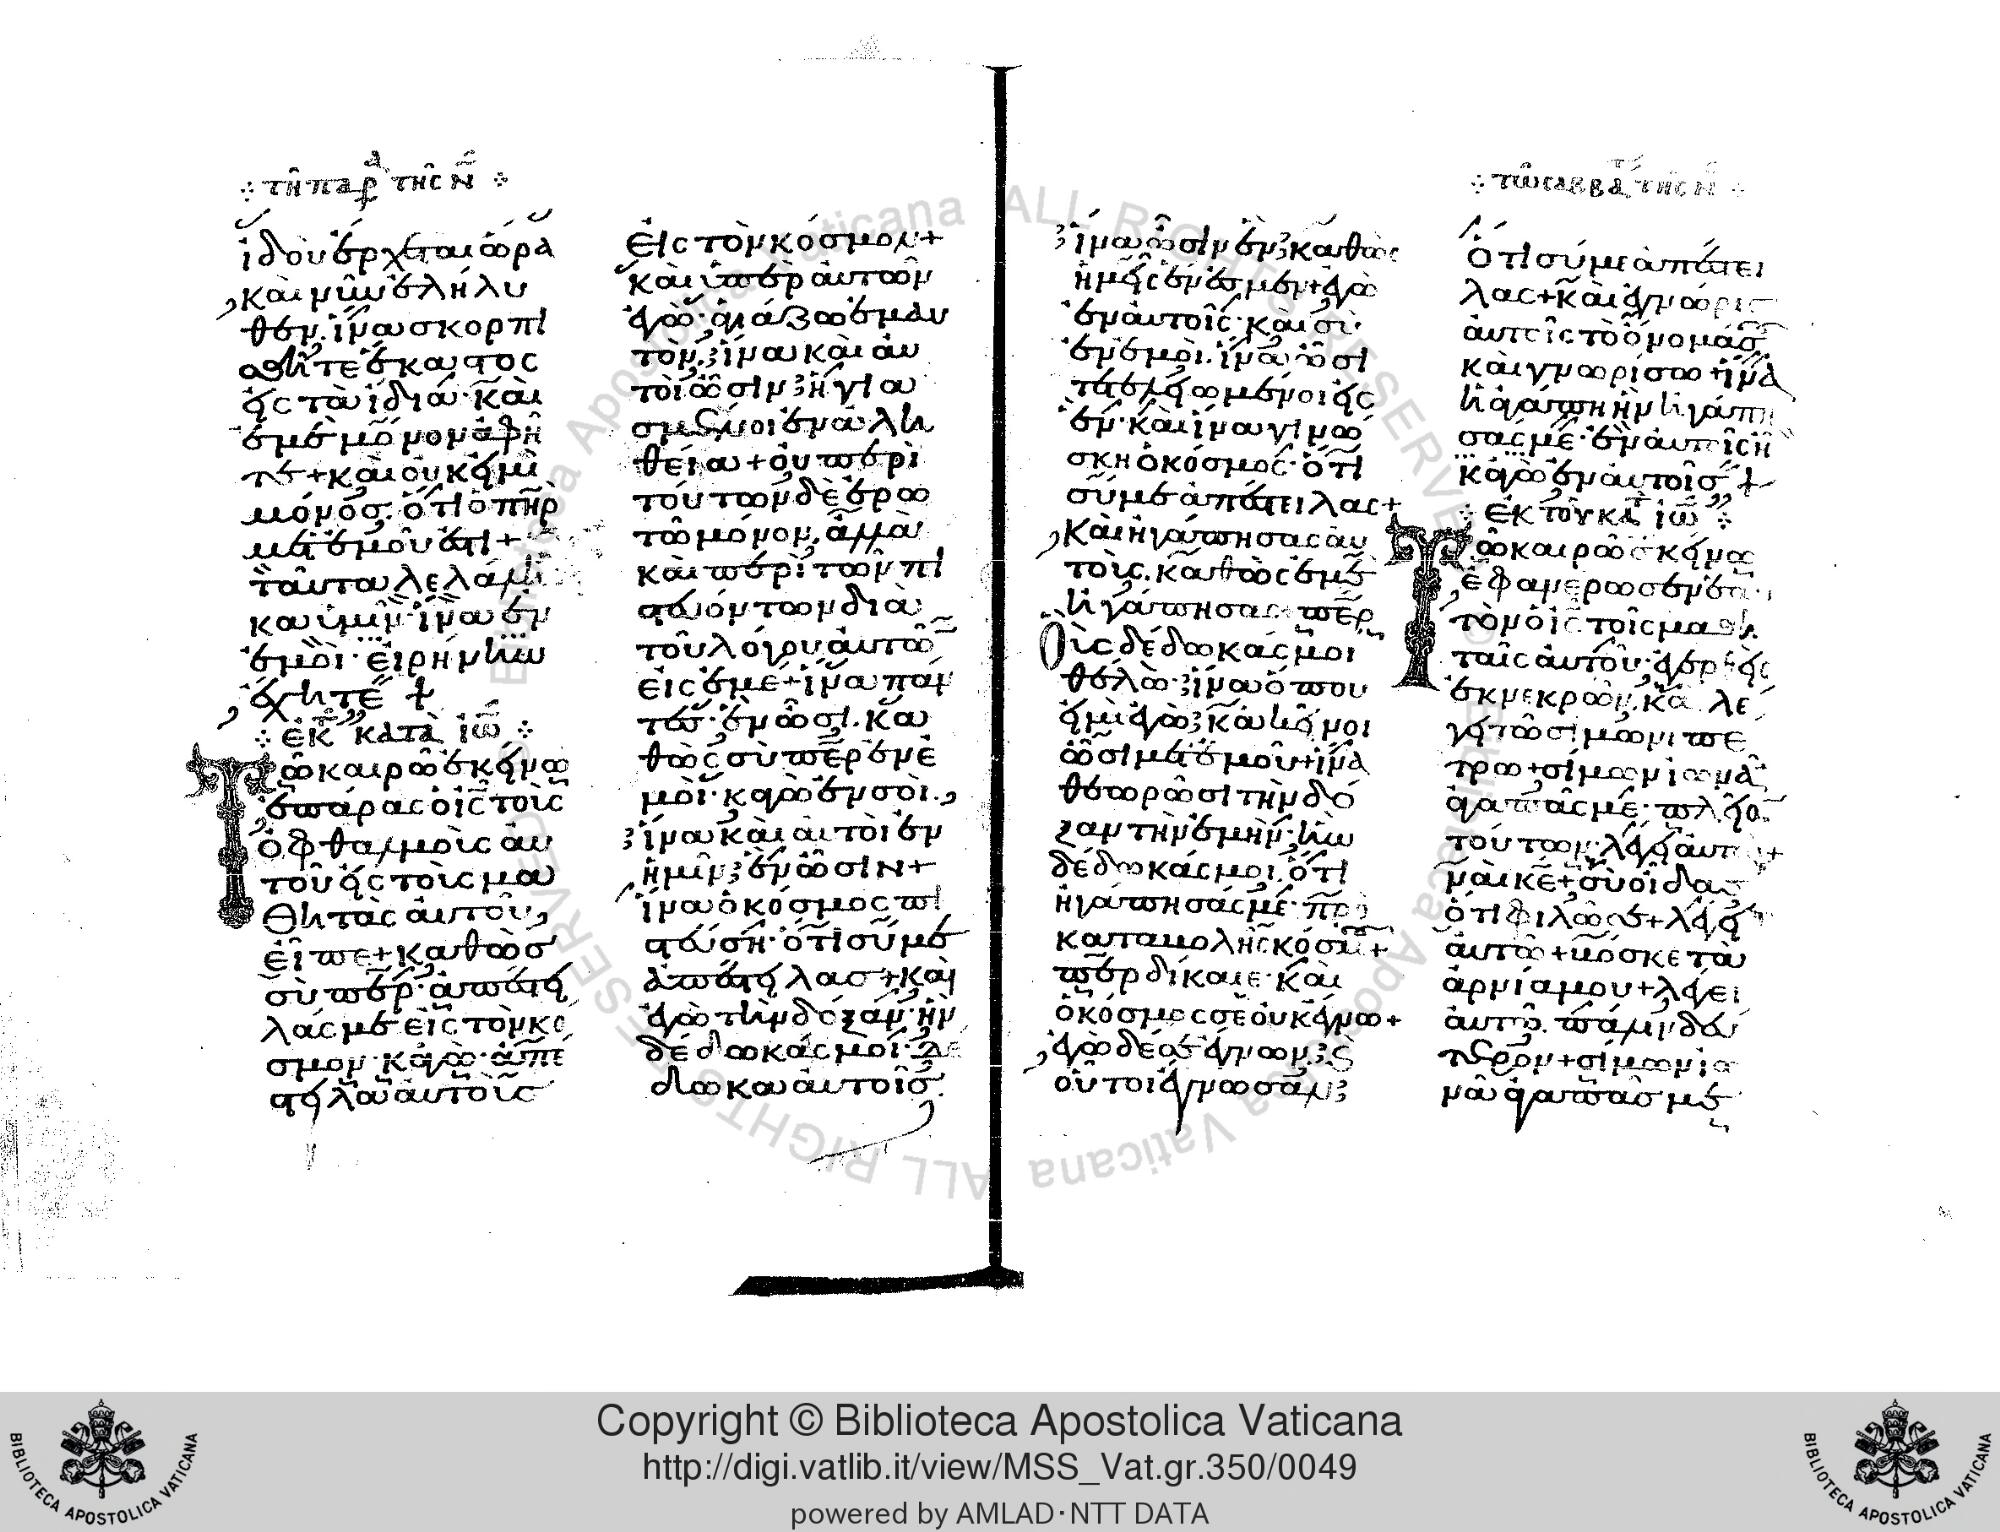 ⁘ τῆ παρ τῆς Ν ⁘
ἰδοὺ ἔρχεται ὥρα
καὶ νῦν ἐλήλυ
θεν. ἵνα σκορπι
σθῆτε ἕκαστος
εἰς τὰ ἴδια· καὶ
ἐμὲ μόνον ἀφῆ
τε + καὶ οὐκ εἰμὶ
μόνος. ὅτι ὁ πηρ
μετ ἐμοῦ ἐστι +
ταῦτα λελάλη
κα ὑμῖν· ἵνα ἐν
ἐμοὶ· εἰρήνην
ἔχητε +
⁘ ἐκ κατὰ ἰω ⁘
Τῶ καιρῶ ἐκείνω
ἐπάρας ὁ ις τοὺς
ὀφθαλμοὺς αὐ
τοῦ εἰς τοὺς μα
θητὰς αὐτοῦ,
εἶπε + καθὼς
σὺ περ· ἀπέστει
λάς με εἰς τὸν κό
σμον· κἀγὼ· ἀπέ
στειλα αὐτοὺς
εἰς τὸν κόσμον +
καὶ ὑπὲρ αὐτῶν
ἐγὼ· ἁγιάζω ἐμαυ
τον, ἵνα καὶ αὐ
τοὶ ὦσιν ἡγια
σμένοι ἐν ἀλη
θεία + οὐ περὶ
τούτων δὲ ἐρω
τῶ μόνον, ἀλλὰ
καὶ περὶ τῶν πι
στευόντων διὰ
τοῦ λόγου αὐτῶ
εἰς ἐμέ + ἵνα πάν
τες· ἓν ὦσι. κα
θὼς σὺ περ ἐν ἐ
μοὶ· κἀγὼ ἐν σοὶ.,
ἵνα καὶ αὐτοὶ ἐν
ἡμῖν ἓν ὦσιν +
ἵνα ὁ κόσμος πι
στεύση· ὅτι σύ με
ἀπέστειλας + καὶ
ἐγὼ τὴν δόξαν· ἣν
δέδωκάς μοι· δέ
δωκα αὐτοῖς.
ἵνα ὦσιν ἓν καθὼς
ἡμεῖς ἕν ἐσμεν + ἐγὼ
ἐν αὐτοῖς· καὶ σὺ·
ἐν ἐμοὶ. ἵνα ὦσι
τετελειωμένοι εἰς
ἕν· καὶ ἵνα γινώ
σκη ὁ κόσμος· ὅτι
σύ με ἀπέστειλας +
Καὶ ἠγάπησας αὐ
τοὺς. καθὼς ἐμὲ
ἠγάπησας περ,
Οὓς δέδωκάς μοι
θέλω· ἵνα ὅπου
εἰμὶ ἐγὼ κἀκεῖνοι
ὦσι μετ ἐμοῦ + ἵνα
θεωρῶσι τὴν δό
ξαν τὴν ἐμὴν, ἣν
δέδωκάς μοι, ὅτι
ἠγάπησάς με· πρὸ
καταβολῆς κόσμ +
περ δίκαιε· καὶ
ὁ κόσμος σε οὐκ ἔγνω +
ἐγὼ δέ σε ἔγνων, καὶ
οὗτοι ἔγνωσαν
ὅτι σύ με ἀπέστει
λας + καὶ ἐγνώρισ
αὐτοῖς τὸ ὄνομά σ
καὶ γνωρίσω + ἵνα
ἡ ἀγάπη ἣν ἠγάπη
σάς με· ἐν αὐτοῖς ῆ
κἀγὼ ἐν αὐτοῖς +
⁘ τῶ σαββα τῆς Ν ⁘
⁘ ἐκ τοῦ κατ ἰω ⁘
Τῶ καιρῶ ἐκείνω
ἐφανέρωσεν ἑαυ
τὸν ὁ ις τοῖς μαθη
ταῖς αὐτοῦ· ἐγερθεὶς
ἐκ νεκρῶν, καὶ λέ
γει τῶ σίμωνι πέ
τρω + σίμων ἰωνᾶ
ἀγαπᾶς με· πλεῖο
τούτων. λέγει αὐτῶ +
ναὶ κε + σὺ οἶδας
ὅτι φιλῶ σε + λέγει
αὐτῶ + βόσκε τὰ
ἀρνία μου + λέγει
αὐτῶ. πάλιν δεύ
τερον + σίμων ἰω
νᾶ ἀγαπᾶς με
Copyright © Biblioteca Apostolica Vaticana
http://digi.vatlib.it/view/MSS_Vat.gr.350/0049
powered by AMLAD·NTT DATA
BIBLIOTECA APOSTOLICA VATICANA
BIBLIOTECA APOSTOLICA VATICANA